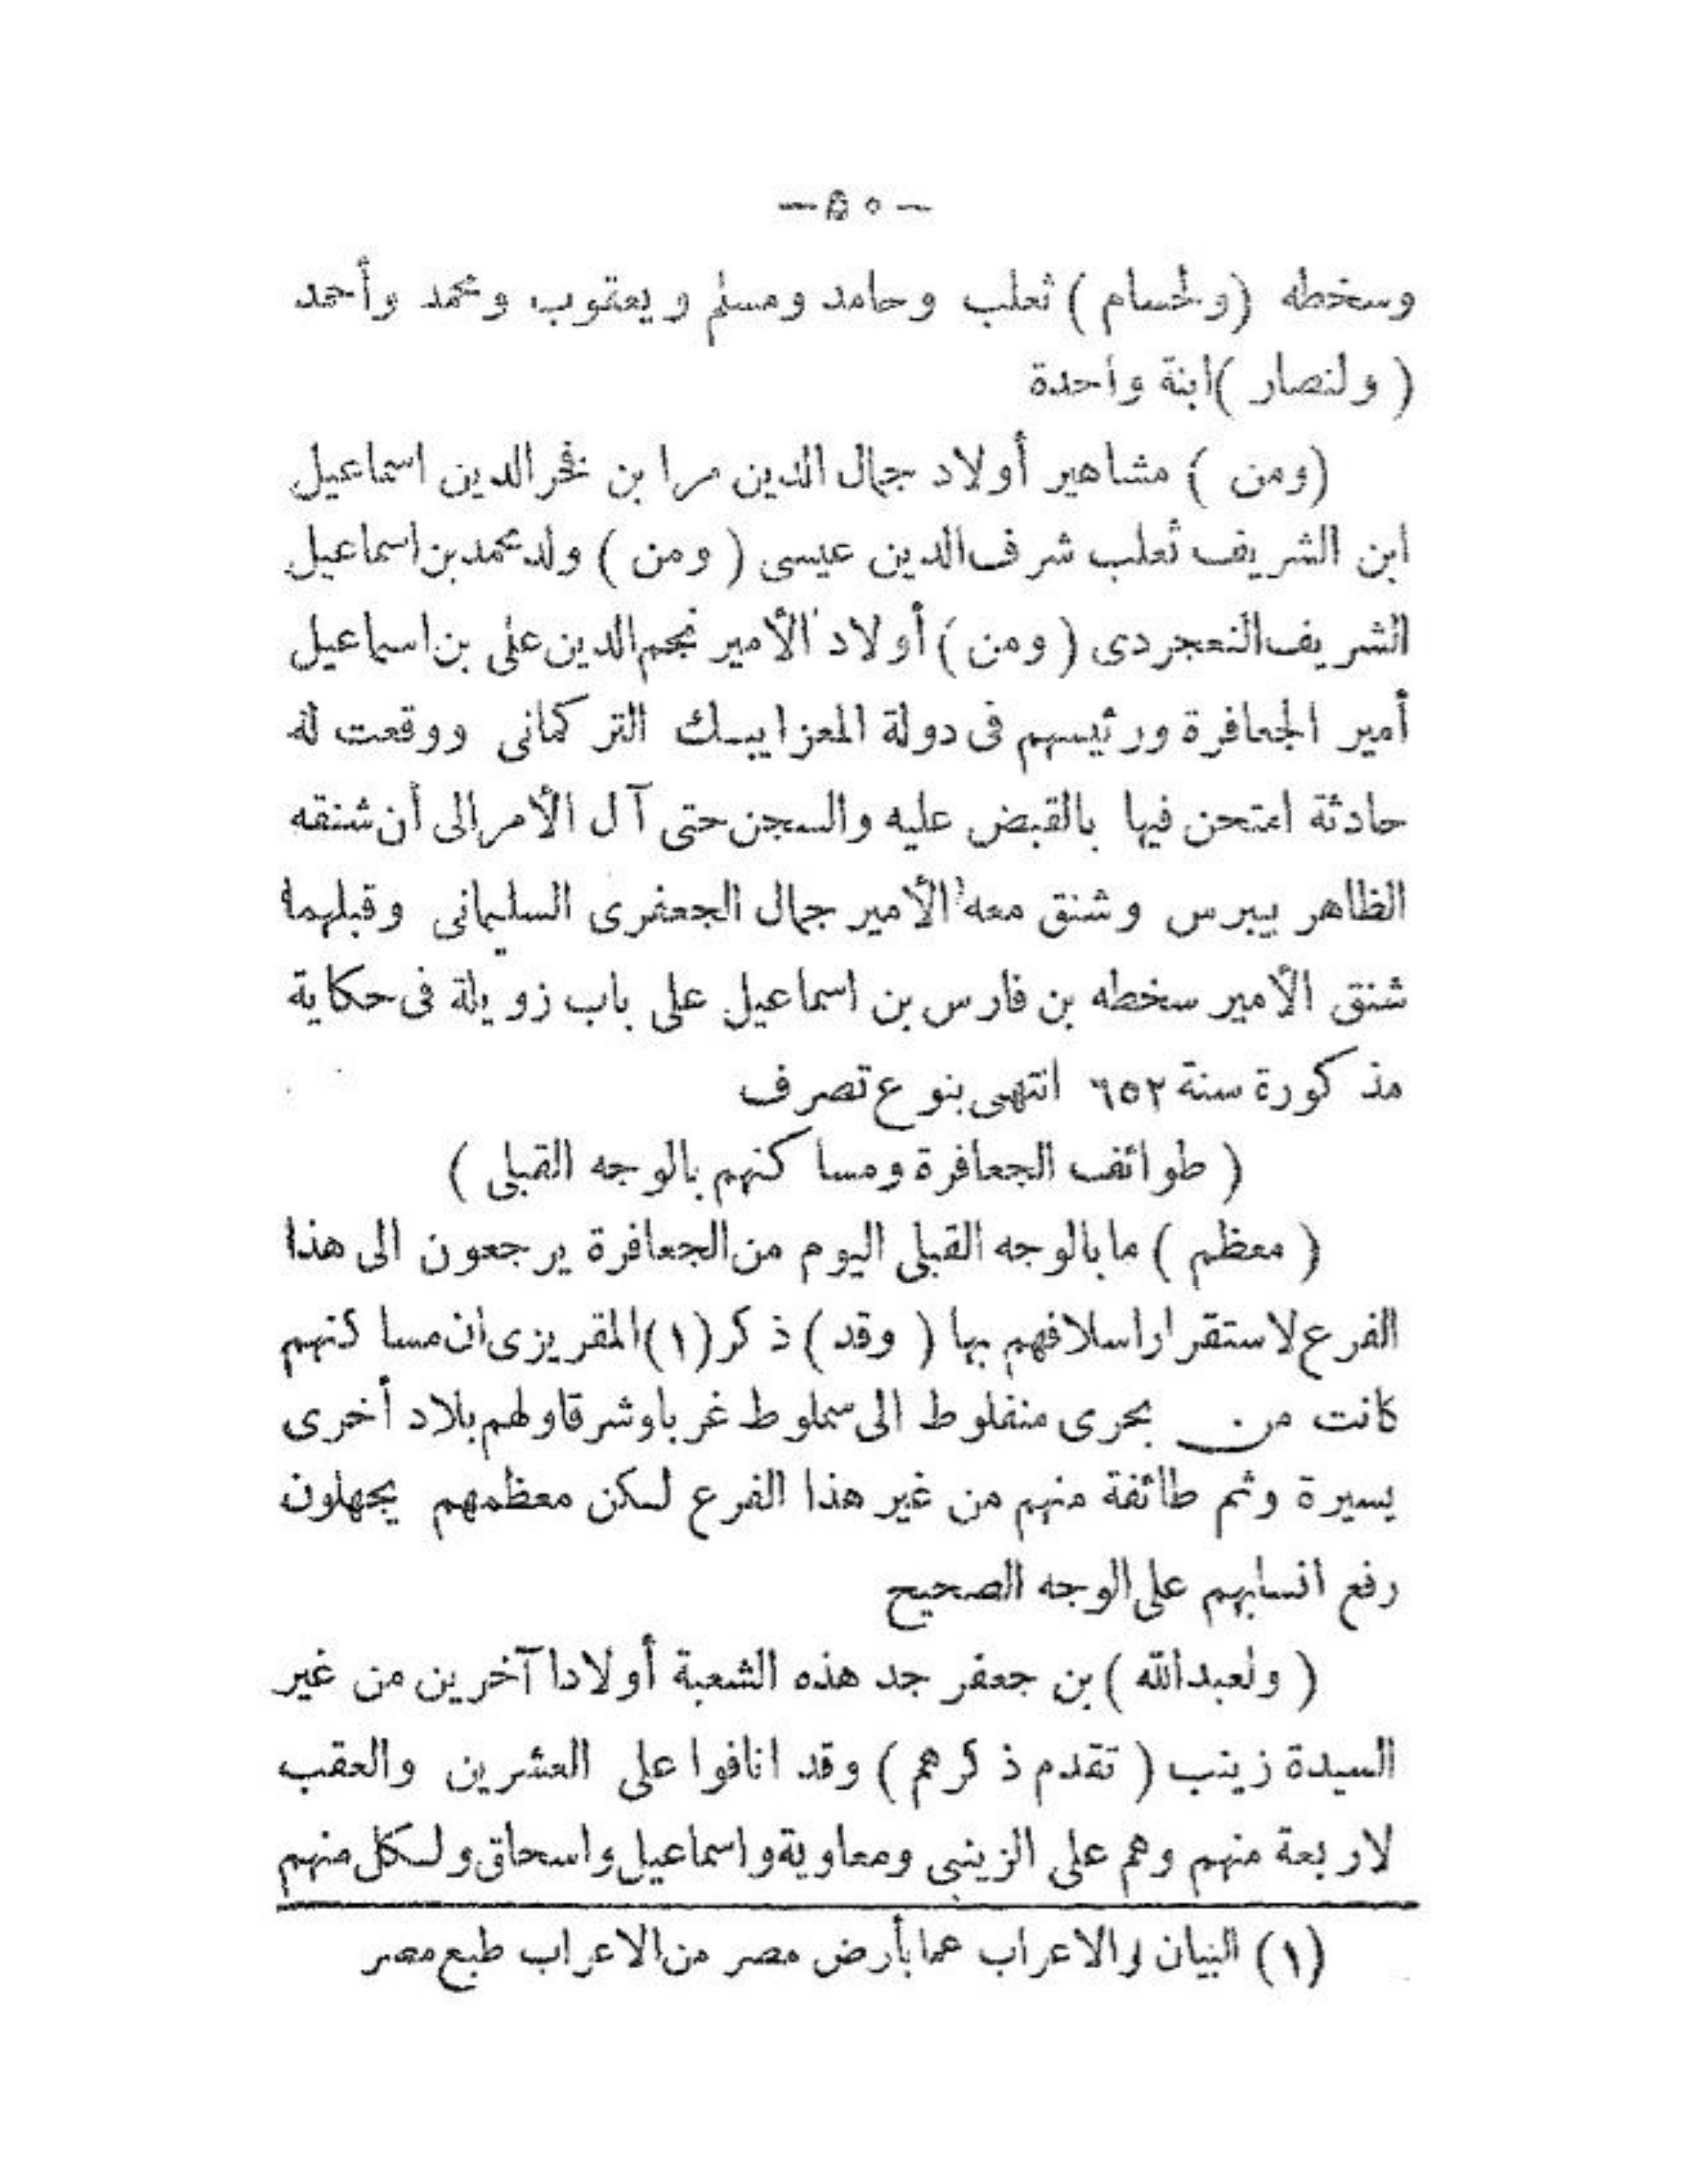 — ٥٠ —
وسخطه (ولحسام) ثعلب وحامد ومسلم ويعقوب ومحمد وأحمد
(ولنصار) ابنة واحدة
(ومن) مشاهير أولاد جمال الدين مرا بن فخر الدين اسماعيل
ابن الشريف ثعلب شرف الدين عيسى (ومن) ولد محمد بن اسماعيل
الشريف النعجردى (ومن) أولاد الأمير نجم الدين على بن اسماعيل
أمير الجعافرة ورئيسهم فى دولة المعز ايبك التركمانى ووقعت له
حادثة امتحن فيها بالقبض عليه والسجن حتى آل الأمر الى أن شنقه
الظاهر بيبرس وشنق معه الأمير جمال الجعفرى السليمانى وقبلهما
شنق الأمير سخطه بن فارس بن اسماعيل على باب زويلة فى حكاية
مذكورة سنة ٦٥٢ انتهى بنوع تصرف
(طوائف الجعافرة ومساكنهم بالوجه القبلى)
(معظم) ما بالوجه القبلى اليوم من الجعافرة يرجعون الى هذا
الفرع لاستقرار اسلافهم بها (وقد) ذكر (١) المقريزى ان مساكنهم
كانت من بحرى منفلوط الى سملوط غربا وشرقا ولهم بلاد أخرى
يسيرة وثم طائفة منهم من غير هذا الفرع لكن معظمهم يجهلون
رفع انسابهم على الوجه الصحيح
(ولعبد الله) بن جعفر جد هذه الشعبة أولادا آخرين من غير
السيدة زينب (تقدم ذكرهم) وقد انافوا على العشرين والعقب
لاربعة منهم وهم على الزينبى ومعاوية واسماعيل واسحاق ولكل منهم
(١) البيان والاعراب عما بأرض مصر من الاعراب طبع مصر